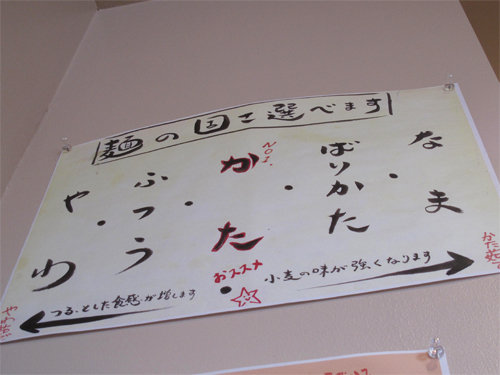 麺の固さ選べます
なま
・
ばりかた
・
NO1.
かた
おススメ
・
ふつう
・
やわ
小麦の味が強くなります
つるっとした食感が増します